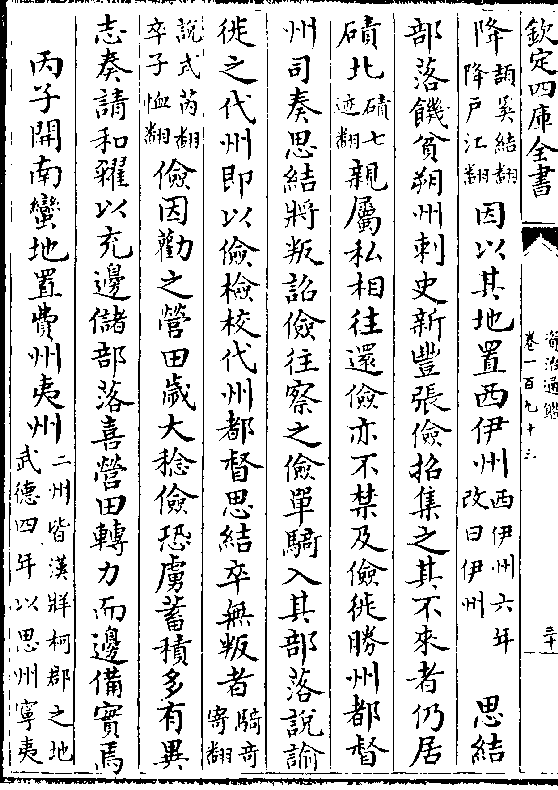 欽定四庫全書
資治通鑑
卷一百九十三
三十
降頡奚結翻降戶江翻因以其地置西伊州西伊州六年改曰伊州 思結
部落饑貧朔州刺史新豐張儉招集之其不來者仍居
磧北磧七迹翻親屬私相往還儉亦不禁及儉徙勝州都督
州司奏思結將叛詔儉往察之儉單騎入其部落說諭
徙之代州即以儉檢校代州都督思結卒無叛者騎奇寄翻
說式芮翻卒子恤翻儉因勸之營田歲大稔儉恐虜蓄積多有異
志奏請和糴以充邊儲部落喜營田轉力而邊備實焉
丙子開南蠻地置費州夷州二州皆漢牂柯郡之地武德四年以思州寧夷